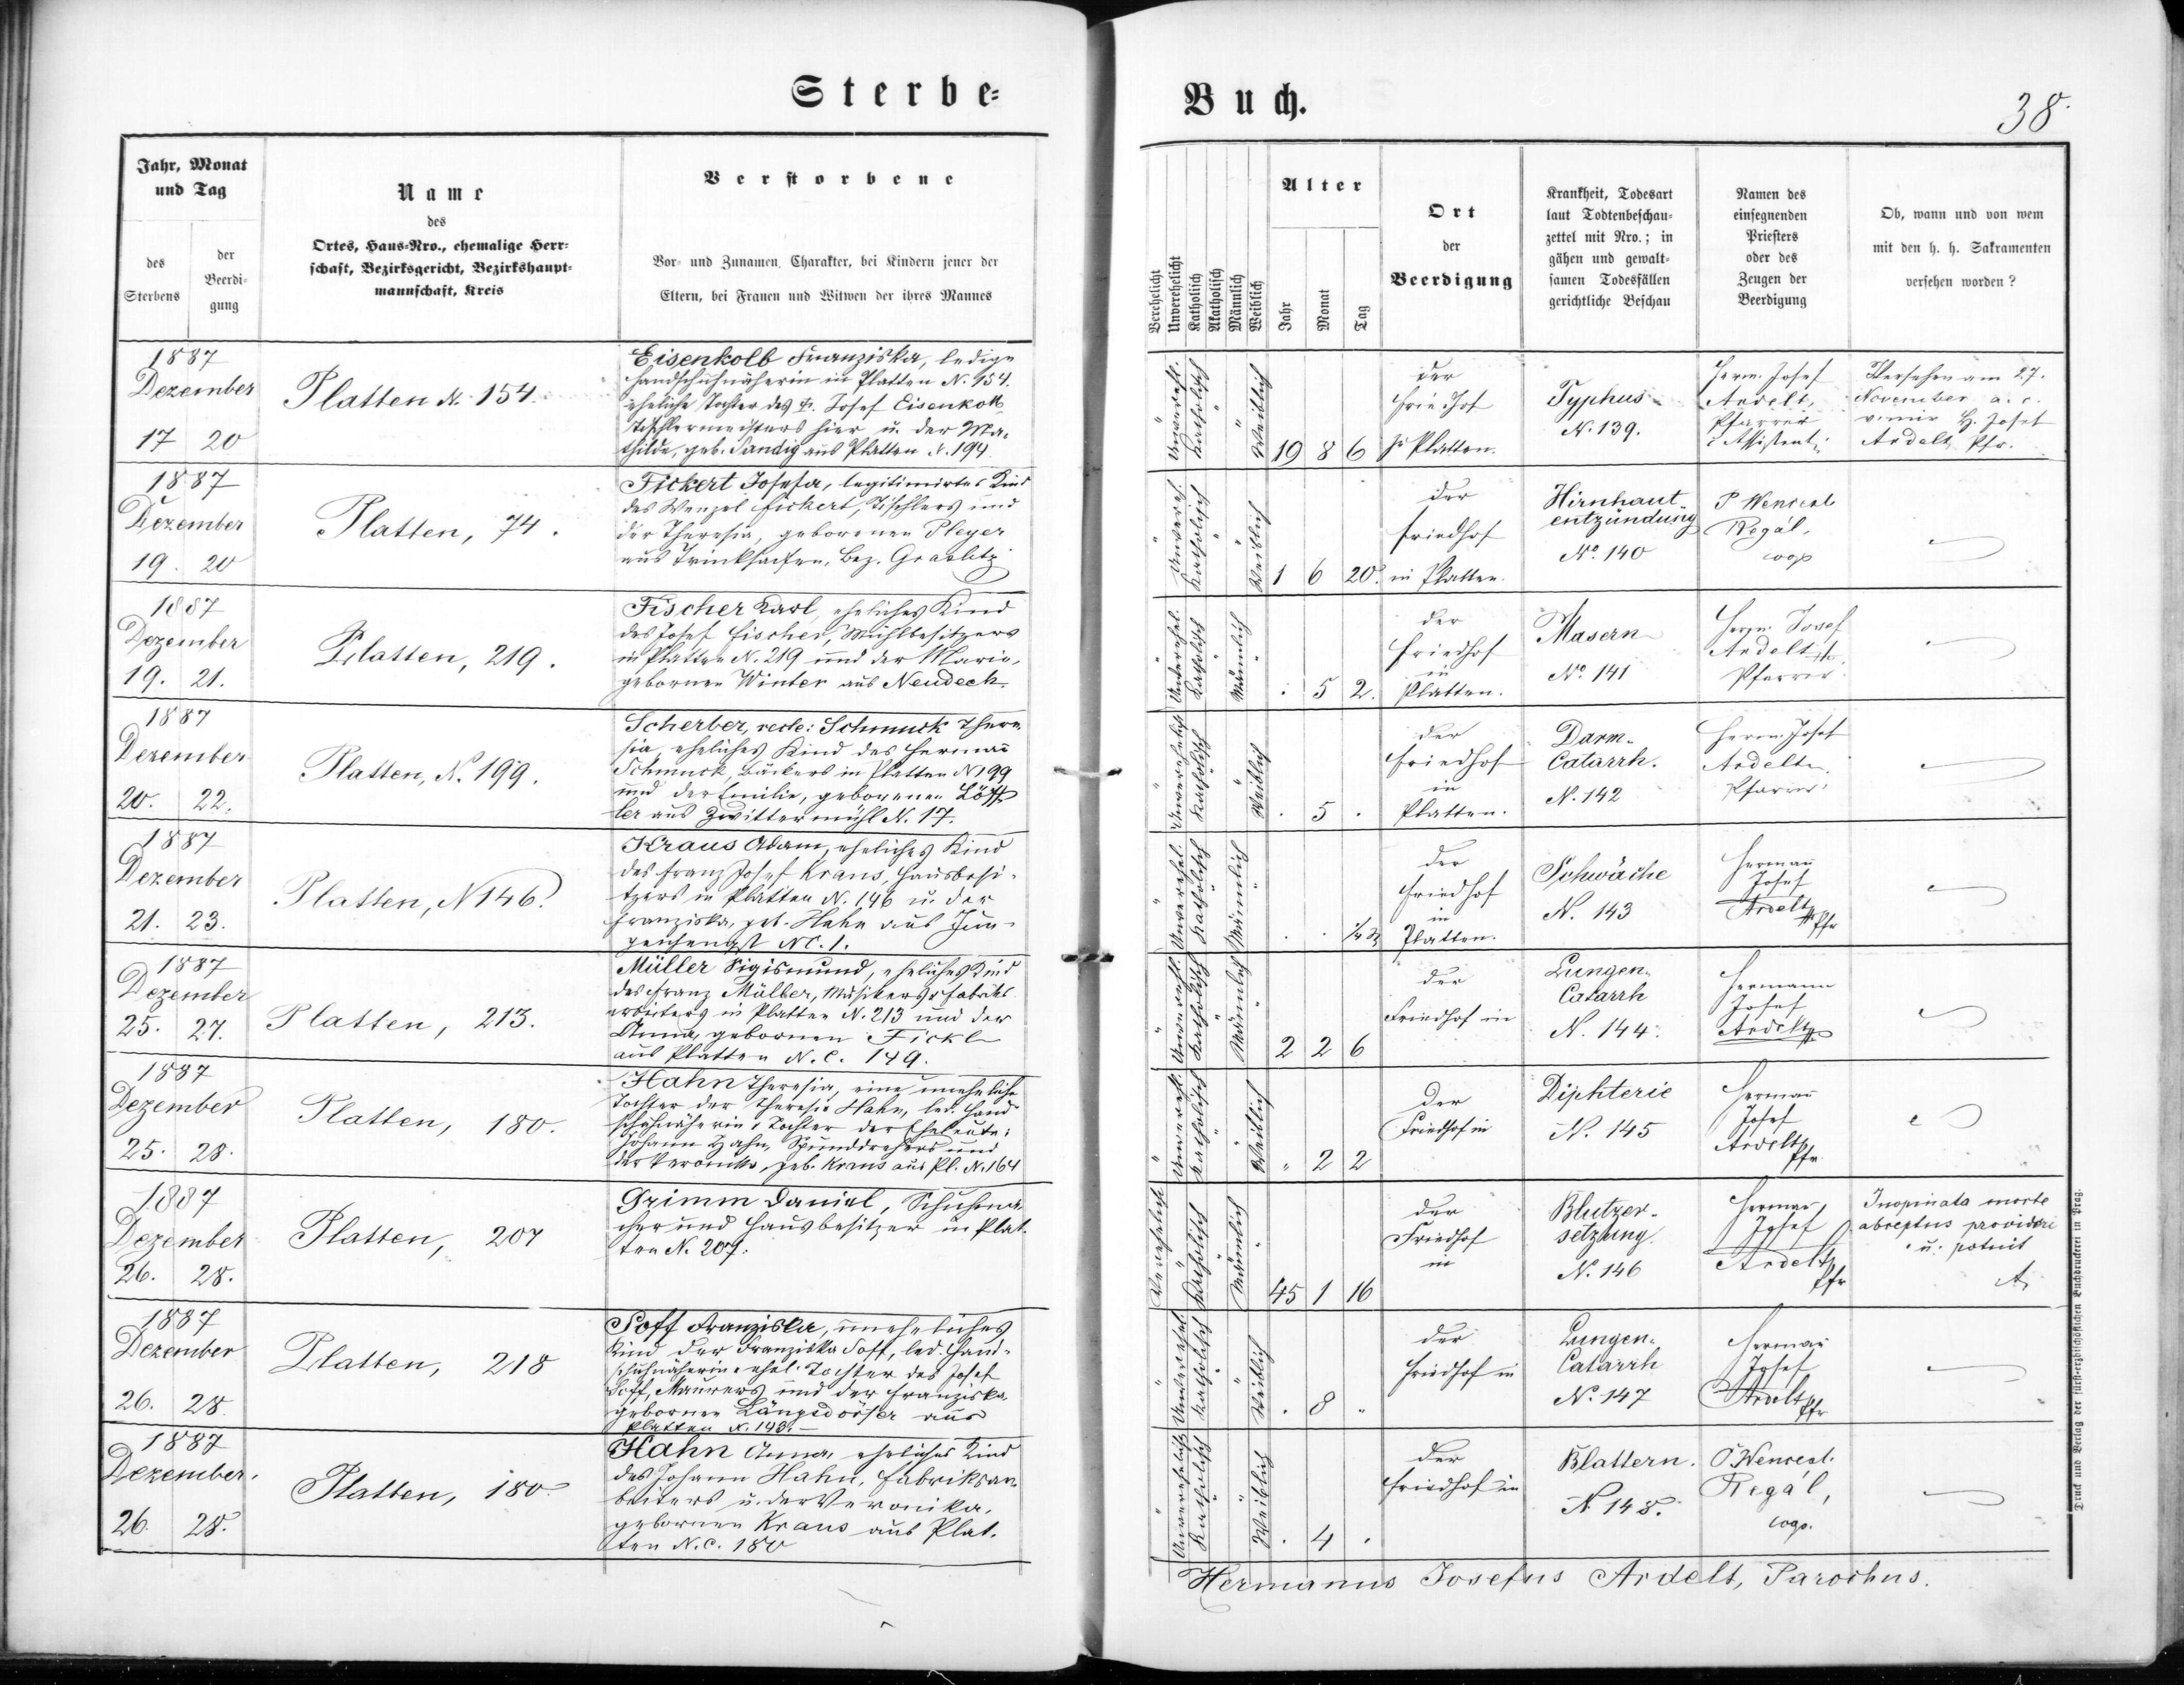 Sterbe-
Buch.
38.
Jahr, Monat
und Tag
des
Sterbens
der
Beerdi-
gung
Name
des
Ortes, Haus-Nro., ehemalige Herr-
schaft, Bezirksgericht, Bezirkshaupt-
mannschaft, Kreis
Verstorbene
Vor- und Zunamen, Charakter, bei Kindern jener der
Eltern, bei Frauen und Witwen der ihres Mannes
Verehelicht
Unverehelicht
Katholisch
Akatholisch
Männlich
Weiblich
Alter
Jahr
Monat
Tag
Ort
der
Beerdigung
Krankheit, Todesart
laut Todtenbeschau-
zettel mit Nro.; in
gähen und gewalt-
samen Todesfällen
gerichtliche Beschau
Namen des
einsegnenden
Priesters
oder des
Zeugen der
Beerdigung
Ob, wann und von wem
mit den h. h. Sakramenten
versehen worden?
1887
Dezember
17 20
Platten N. 154.
Eisenkolb Franziska, ledige
Handschuhnäherin in Platten N. 154.
eheliche Tochter des H. Josef Eisenkolb
Tischlermeisters hier u. der Ma-
thilde, geb. Sandig aus Platten N. 194
Unvereh.
Katholisch
Weiblich
19 8 6
der
Friedhof
zu Platten.
Typhus
N. 139.
Herm. Josef
Ardelt,
Pfarrer
Assistent
Versehen am 27.
November a. c.
v. mir H. Josef
Ardelt Pfr.
1887
Dezember
19. 20
Platten, 74.
Fickert Josefa, legitimirtes Kind
des Wenzel Fickert, Tischlers und
der Theresia, geborenen Pleyer
aus Trinkseifen, Bez. Graslitz
Unvereh.
Katholisch
Weiblich
1 6 20.
der
Friedhof
in Platten.
Hirnhaut-
entzündung
No. 140
P Wencesl
Regál,
coop
1887
Dezember
19. 21.
Platten, 219.
Fischer Karl, eheliches Kind
des Josef Fischer, Mühlbesitzers
in Platten N. 219 und der Marie,
gebornen Winter aus Neudeck.
Unverehel.
Katholisch
Männlich
. 5 2.
der
Friedhof
in
Platten.
Masern
No. 141
Herm. Josef
Ardelt
Pfarrer.
1887
Dezember
20. 22.
Platten, N. 199.
Scherber, recte: Schmuck There-
sia, eheliches Kind des Hermann
Schmuck, Bäckers in Platten N 199
und der Emilie, geborenen Löff-
ler aus Zwittermühl N. 17.
Unverehelicht
Katholisch
Weiblich
. 5 .
der
Friedhof
in
Platten.
Darm-
Catarrh.
N. 142
Herm. Josef
Ardelt
Pfarrer
1887
Dezember
21. 23.
Platten, N 146.
Kraus Adam, eheliches Kind
des Franz Josef Kraus, Hausbesi-
tzers in Platten N. 146 u. der
Franziska, geb. Hahn aus Jun-
genhengst NC. 1.
Unverehel.
Katholisch
Männlich
. . 1/4
der
Friedhof
in
Platten.
Schwäche
N. 143
Hermann
Josef
Ardelt
Pfr
1887
Dezember
25. 27.
Platten, 213.
Müller Sigismund, eheliches Kind
des Franz Müller, Musikers & Fabriks-
arbeiters in Platten N. 213 und der
Anna, gebornen Fickl
aus Platten N. C. 149.
Unverehl.
Katholisch
Männlich
2 2 6
der
Friedhof in
Lungen-
Catarrh
N. 144.
Hermann
Josef
Ardelt
1887
Dezember
25. 28.
Platten, 180.
Hahn Theresia, eine uneheliche
Tochter der Theresia Hahn, led. Hand-
schuhnäherin, Tochter der Eheleute:
Johann Hahn, Spunddrehers und
der Veronika, geb. Kraus aus Pl. N. 164
Unverehl.
Katholisch
Weiblich
" 2 2
Der
Friedhof in
Diphterie
N. 145
Hermann
Josef
Ardelt
Pfr
1887
Dezember
26. 28.
Platten, 207
Grimm Daniel, Schuhma-
cher und Hausbesitzer in Plat-
ten N. 207.
Verehelicht
Katholisch
Männlich
45 1 16
der
Friedhof
in
Blutzer-
setzung.
N. 146
Hermann
Josef
Ardelt
Pfr
Inopinata morte
abreptus provideri
n. potuit
A.
1887
Dezember
26. 28
Platten, 218
Soff Franziska, uneheliches
Kind der Franziska Soff, led. Hand-
schuhnäherin, ehel. Tochter des Josef
Soff, Maurers und der Franziska
gebornen Längsdörfer aus
Platten N. 149.
Unverehel
Katholisch
Weiblich
. 8 "
der
Friedhof in
Lungen-
Catarrh
No. 147
Hermann
Josef
Ardelt
Pfr
1887
Dezember.
26. 28.
Platten, 180.
Hahn Anna, eheliches Kind
des Johann Hahn, Fabriksar-
beiters u. der Veronika,
gebornen Kraus aus Plat-
ten N. C. 180
Unverehelicht
Katholisch
Weiblich
. 4 .
Der
Friedhof in
Blattern.
N. 148.
P. Wencesl.
Regál,
coop.
Hermanus Josefus Ardelt, Parochus.
Druck und Verlag der fürsterzbischöflichen Buchdruckerei in Prag.